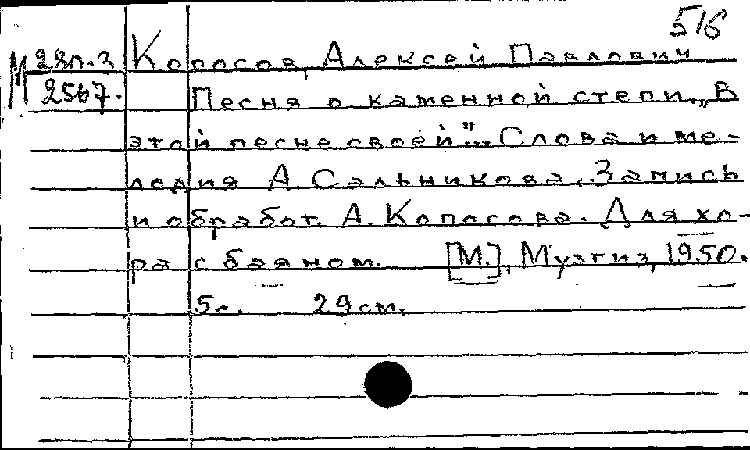 516
М 280.3 Колосов, Алексей Павлович
2567. Песня о каменной степи. „В
этой песне своей"... Слова и ме-
лодия А. Сальникова. Запись
и обработ. А. Колосова. Для хо-
ра с баяном. [М.], Музгиз, 1950.
5с. 29 см.